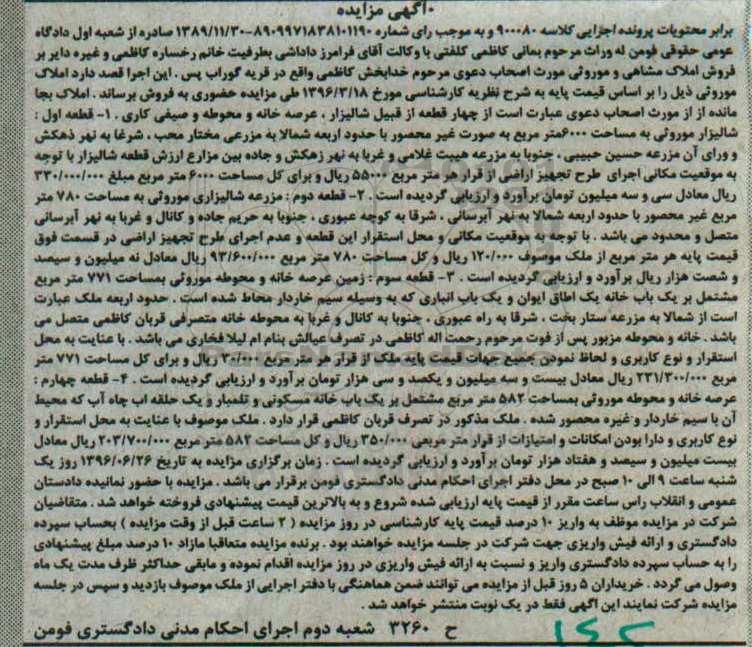 آگهی مزایده
برابر محتویات پرونده اجرایی کلاسه ۹۰۰۰۸۰ و به موجب رای شماره ۸۹۰۹۹۷۱۸۳۸۱۰۱۱۹۰-۱۳۸۹/۱۱/۳۰ صادره از شعبه اول دادگاه
عمومی حقوقی فومن له وراث مرحوم بمانی کاظمی کلفتی با وکالت آقای فرامرز داداشی بطرفیت خانم رخساره کاظمی و غیره دایر بر
فروش املاک مشاهی و موروثی مورث اصحاب دعوی مرحوم خدابخش کاظمی واقع در قریه گوراب پس . این اجرا قصد دارد املاک
موروثی ذیل را بر اساس قیمت پایه به شرح نظریه کارشناسی مورخ ۱۳۹۶/۳/۱۸ طی مزایده حضوری به فروش برساند . املاک بجا
مانده از از مورث اصحاب دعوی عبارت است از چهار قطعه از قبیل شالیزار ، عرصه خانه و محوطه و صیفی کاری . ۱- قطعه اول :
شالیزار موروثی به مساحت ۶۰۰۰متر مربع به صورت غیر محصور با حدود اربعه شمالا به مزرعی مختار محب ، شرغا به نهر ذهکش
و ورای آن مزرعه حسین حبیبی . جنوبا به مزرعه هیبت غلامی و غربا به نهر زهکش و جاده بین مزارع ارزش قطعه شالیزار با توجه
به موقعیت مکانی اجرای طرح تجهیز اراضی از قرار هر متر مربع ۵۵۰۰۰ ریال و برای کل مساحت ۶۰۰۰ متر مربع مبلغ ۳۳۰/۰۰۰/۰۰۰
ریال معادل سی و سه میلیون تومان برآورد و ارزیابی گردیده است . ۲- قطعه دوم : مزرعه شالیزاری موروثی به مساحت ۷۸۰ متر
مربع غیر محصور با حدود اربعه شمالا به نهر آبرسانی ، شرقا به کوچه عبوری ، جنوبا به حریم جاده و کانال و غربا به نهر آبرسانی
متصل و محدود می باشد . با توجه به موقعیت مکانی و محل استقرار این قطعه و عدم اجرای طرح تجهیز اراضی در قسمت فوق
قیمت پایه هر متر مربع از ملک موصوف ۱۲۰/۰۰۰ ریال و کل مساحت ۷۸۰ متر مربع ۹۳/۶۰۰/۰۰۰ ریال معادل نه میلیون و سیصد
و شصت هزار ریال برآورد و ارزیابی گردیده است . ۳- قطعه سوم : زمین عرصه خانه و محوطه موروثی بمساحت ۷۷۱ متر مربع
مشتمل بر یک باب خانه یک اطاق ایوان و یک باب انباری که به وسیله سیم خاردار محاط شده است . حدود اربعه ملک عبارت
است از شمالا به مزرعه ستار بخت ، شرقا به راه عبوری ، جنوبا به کانال و غربا به محوطه خانه متصرفی قربان کاظمی متصل می
باشد . خانه و محوطه مزبور پس از فوت مرحوم رحمت اله کاظمی در تصرف عیالش بنام ام لیلا فخاری می باشد . با عنایت به محل
استقرار و نوع کاربری و لحاظ نمودن جمیع جهات قیمت پایه ملک از قرار هر متر مربع ۳۰/۰۰۰ ریال و برای کل مساحت ۷۷۱ متر
مربع ۲۳۱/۳۰۰/۰۰۰ ریال معادل بیست و سه میلیون و یکصد و سی هزار تومان برآورد و ارزیابی گردیده است . ۴- قطعه چهارم :
عرصه خانه و محوطه موروثی بمساحت ۵۸۲ متر مربع مشتمل بر یک باب خانه مسکونی و تلمبار و یک حلقه اب چاه آب که محیط
آن با سیم خاردار و غیره محصور شده . ملک مذکور در تصرف قربان کاظمی قرار دارد . ملک موصوف با عنایت به محل استقرار و
نوع کاربری و دارا بودن امکانات و امتیازات از قرار متر مربعی ۳۵۰/۰۰۰ ریال و کل مساحت ۵۸۲ متر مربع ۲۰۳/۷۰۰/۰۰۰ ریال معادل
بیست میلیون و سیصد و هفتاد هزار تومان برآورد و ارزیابی گردیده است . زمان برگزاری مزایده به تاریخ ۱۳۹۶/۰۶/۲۶ روز یک
شنبه ساعت ۹ الی ۱۰ صبح در محل دفتر اجرای احکام مدنی دادگستری فومن برقرار می باشد . مزایده با حضور نمانیده دادستان
عمومی و انقلاب راس ساعت مقرر از قیمت پایه ارزیابی شده شروع و به بالاترین قیمت پیشنهادی فروخته خواهد شد . متقاضیان
شرکت در مزایده موظف به واریز ۱۰ درصد قیمت پایه کارشناسی در روز مزایده ( ۲ ساعت قبل از وقت مزایده ) بحساب سپرده
دادگستری و ارائه فیش واریزی جهت شرکت در جلسه مزایده خواهند بود . برنده مزایده متعاقبا مازاد ۱۰ درصد مبلغ پیشنهادی
را به حساب سپرده دادگستری واریز و نسبت به ارائه فیش واریزی در روز مزایده اقدام نموده و مابقی حداکثر ظرف مدت یک ماه
وصول می گردد . خریداران ۵ روز قبل از مزایده می توانند ضمن هماهنگی با دفتر اجرایی از ملک موصوف بازدید و سپس در جلسه
مزایده شرکت نمایند این اگهی فقط در یک نوبت منتشر خواهد شد .
ح ۳۲۶۰ شعبه دوم اجرای احکام مدنی دادگستری فومن